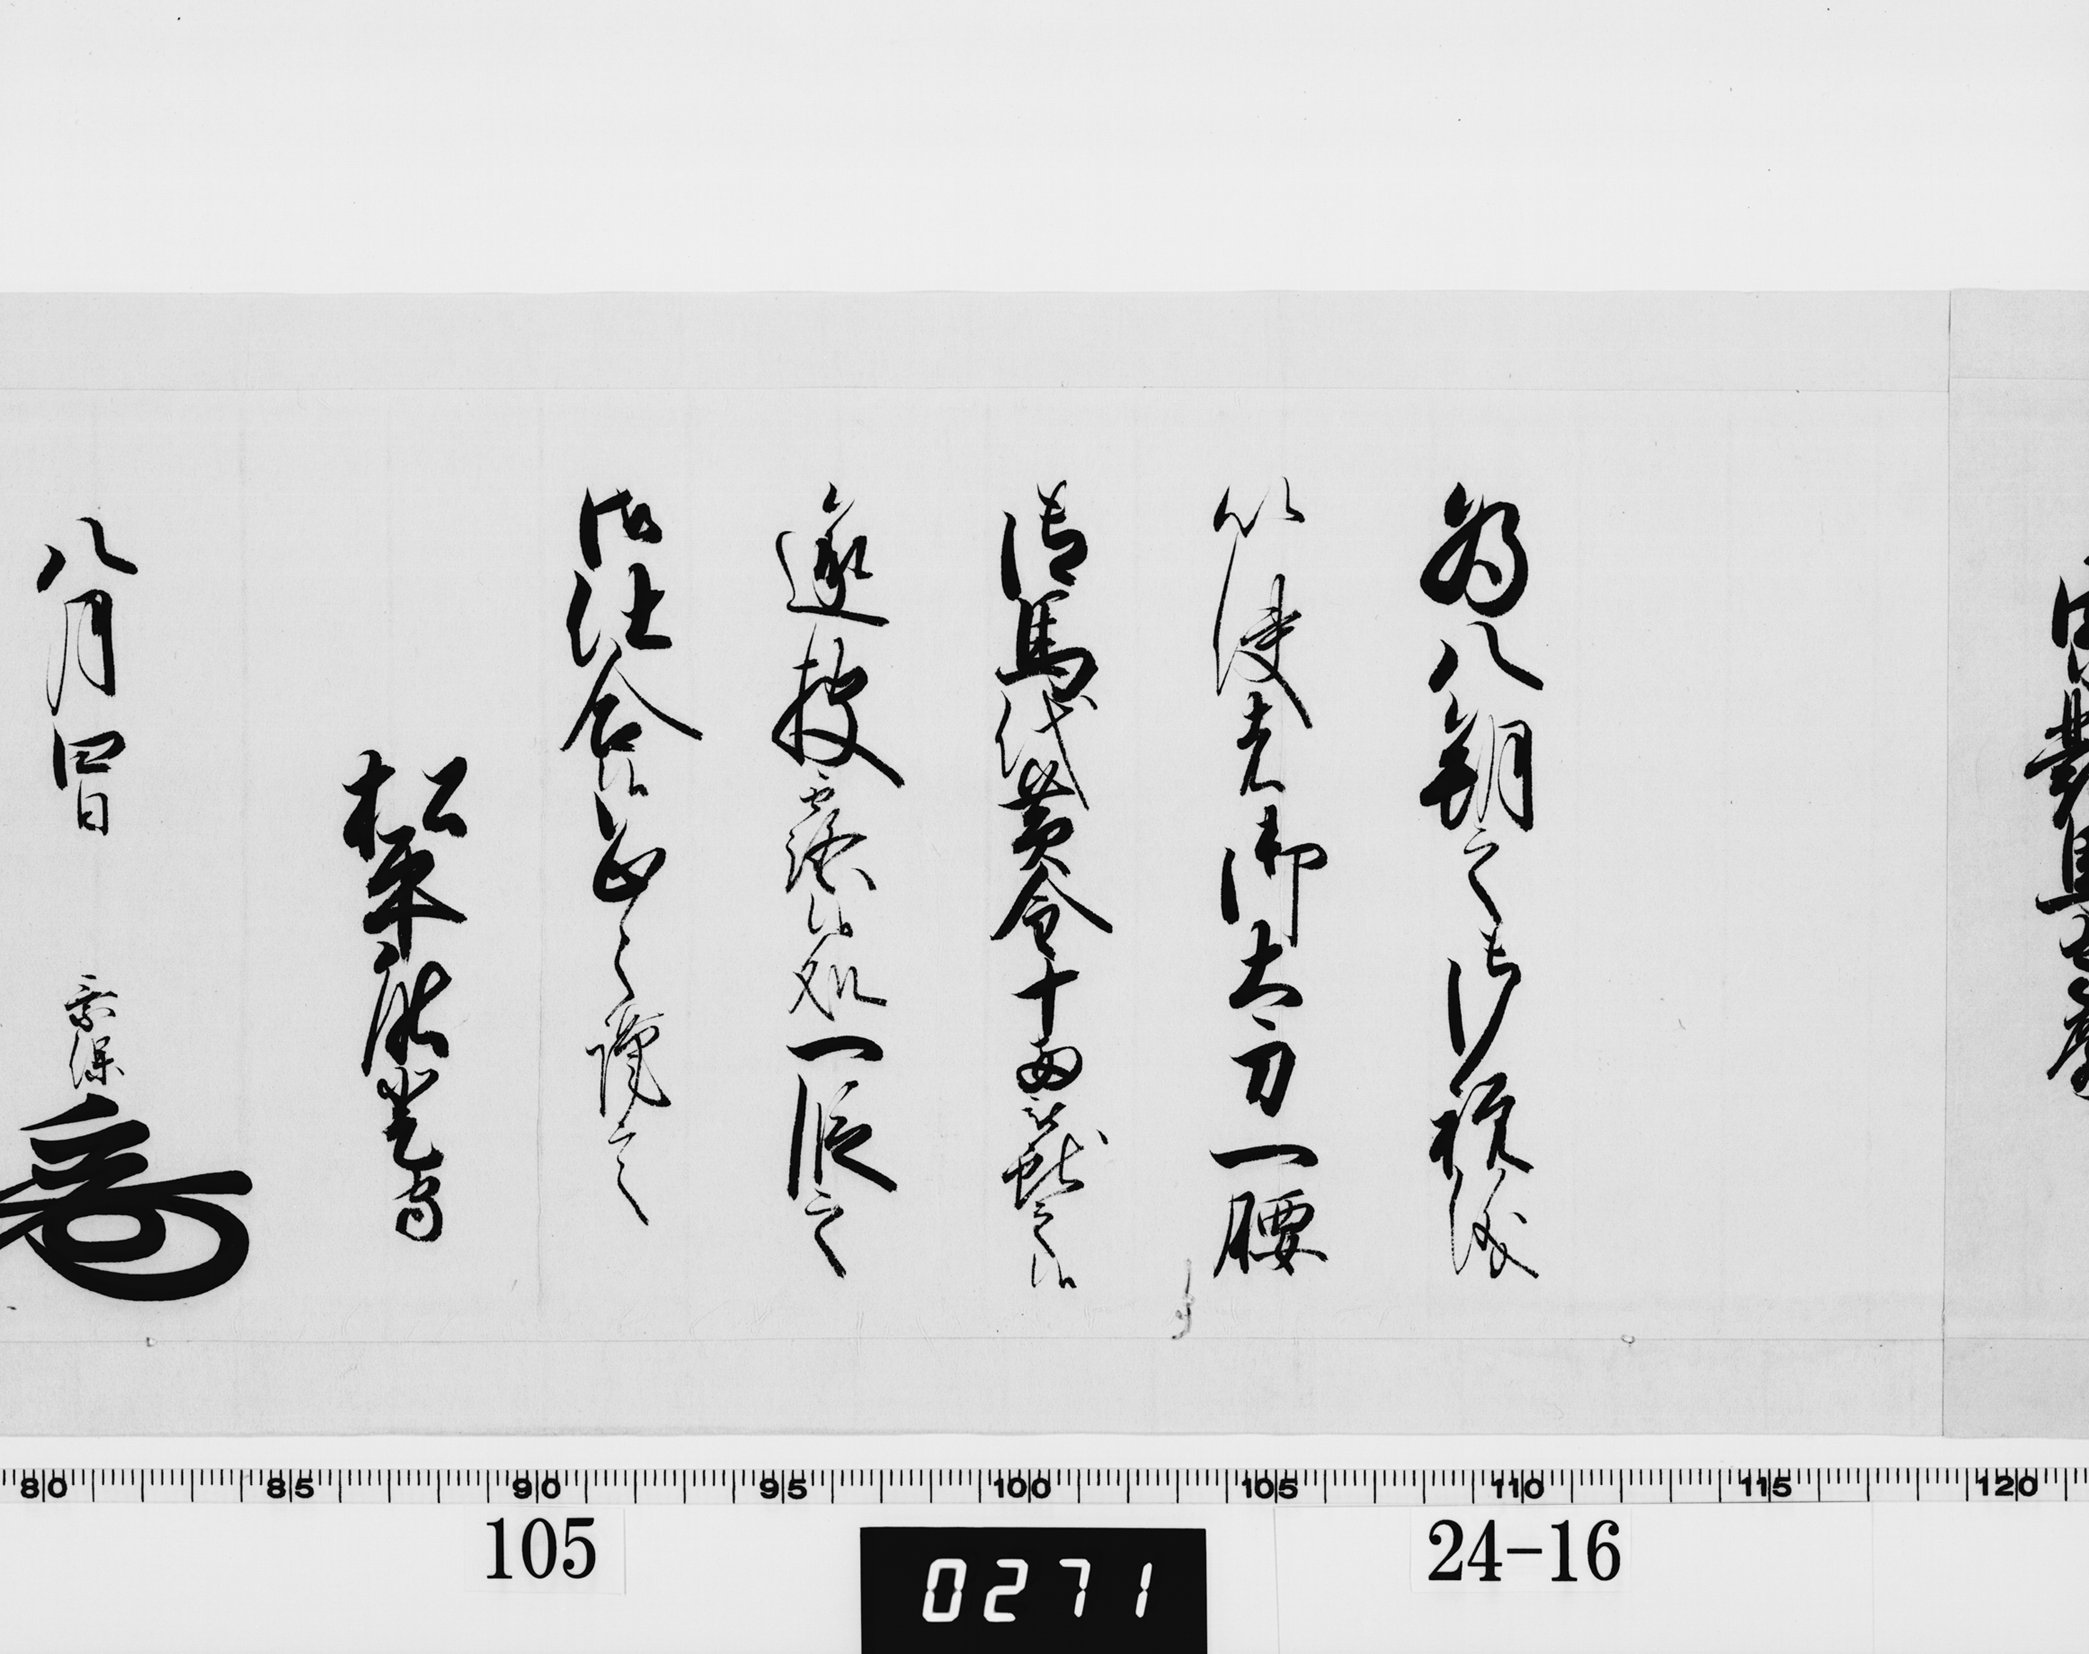 為八朔之御祝儀
以使者御太刀一腰
御馬代黄金十両被献之候
遂披露候処一段之
御仕合候恐々謹言
松平能登守
八月四日 乗保
80 85 90 95 100 105 110 115 120
105 24-16
0271